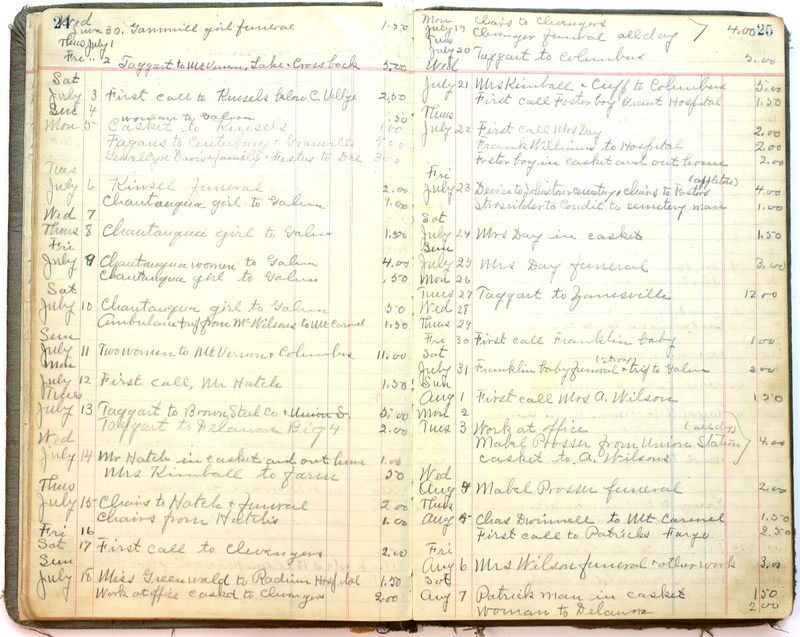 24
Wed
June 30. Gammill girl funeral 1.50
Thus July 1
Fri " 2 Taggart to Mt Vernon, Lake & Cross back 5.00
Sat
July 3 First call to Kinsels below C. Vllge 2.50
Sun 4 woman to Galena .50
Mon 5 Casket to Kinsels 1.00
Fagans to Centerburg & Granville 5.00
Llewellyn Davis family & Festus to Del 3.00
Tues
July 6 Kinsel funeral 2.00
Chautauqua girl to Galena 1.00
Wed 7
Thurs 8 Chautauqua girl to Galena 1.50
Fri
July 9 Chautauqua women to Galena 4.00
Chautauqua girl to Galena .50
Sat
July 10 Chautauqua girl to Galena 50
Ambulance trip from McWilsons to Mt Carmel 1.50
Sun
July 11 Two women to Mt Vernon & Columbus 11.00
Mon
July 12 First call, Mr Hatch 1.50
Tues
July 13 Taggart to Brown Steel Co & Union S. 5.00
Taggart to Delaware Big 4 2.00
Wed
July 14 Mr Hatch in casket and out home 1.00
Mrs Kimball to farm 50
Thus
July 15 Chairs to Hatch & funeral 2.00
Chairs from Hatchs 1.00
Fri 16
Sat 17 First call to Clevengers 2.00
Sun
July 18 Miss Greenwald to Radium Hospital 1.50
Work at office caskd to Clevengers 2.00
25
Mon Chairs to Clevengers
July 19 Clevenger funeral all day 4.00
Tues
July 20 Taggart to Columbus 5.00
Wed
July 21 Mrs Kimball & Cuff to Columbus 5.00
First call Foster boy Grant Hospital 1.50
Thus
July 22 First call Mrs Day 2.00
Frank Williams to Hospital 2.00
Foster boy in casket and out home 2.00
Fri
July 23 Device to Johnstown cemetery & Chairs to Fosters 4.00
to Condit to cemetery man 1.00
Sat
July 24 Mrs Day in casket 1.50
Sun
July 25 Mrs Day funeral 3.00
Mon 26
Tues 27 Taggart to Zanesville 12.00
Wed 28
Thurs 29
Fri 30 First call Franklin baby 1.00
Sat
July 31 Franklin baby funeral & trip to Galena 2.00
Sun
Aug 1 First call Mrs A. Wilson 1.50
Mon 2
Tues 3 Work at office (all day)
Mabel Prosser from Union Station 4.00
casket to A. Wilsons
Wed
Aug 4 Mabel Prosser funeral 2.00
Thus
Aug 5 Chas Dwinnell to Mt. Carmel 1.50
First call to Patricks Farye 2.50
Fri
Aug 6 Mrs Wilson funeral & other work 3.00
Sat
Aug 7 Patrick man in casket 1.50
woman to Delaware 2.00